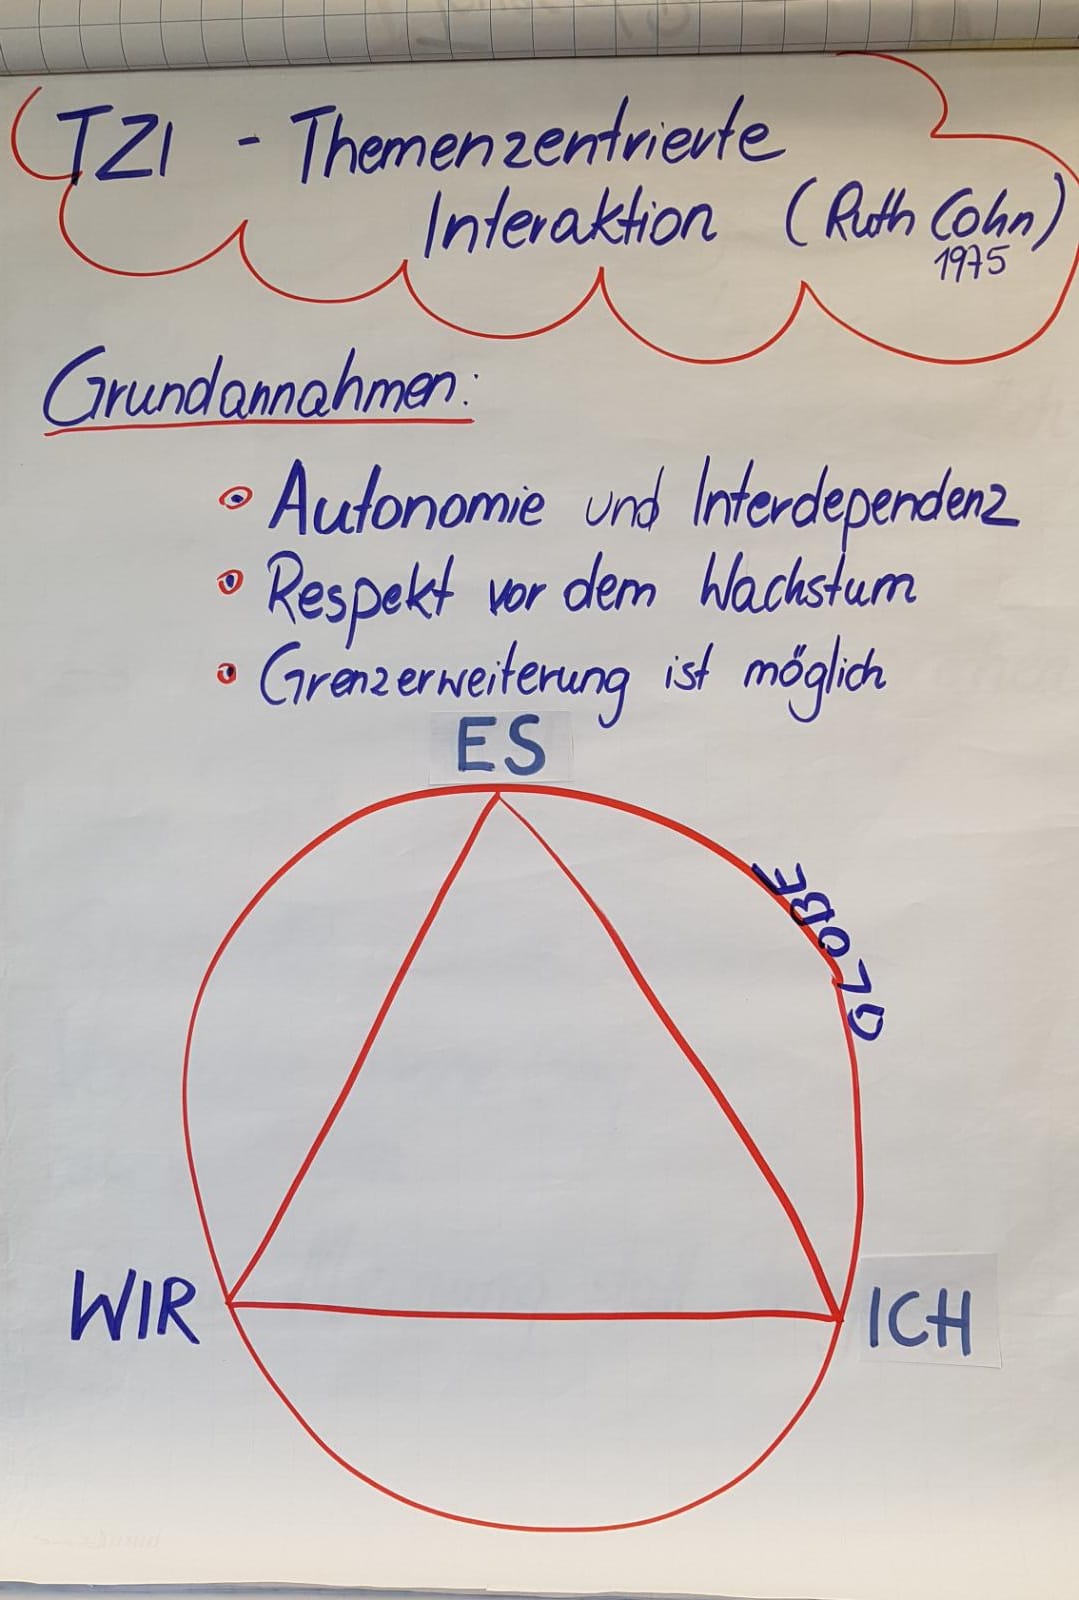 TZI - Themenzentrierte
Interaktion (Ruth Cohn)
1975
Grundannahmen:
Autonomie und Interdependenz
Respekt vor dem Wachstum
Grenzerweiterung ist möglich
ES
GLOBE
WIR
ICH